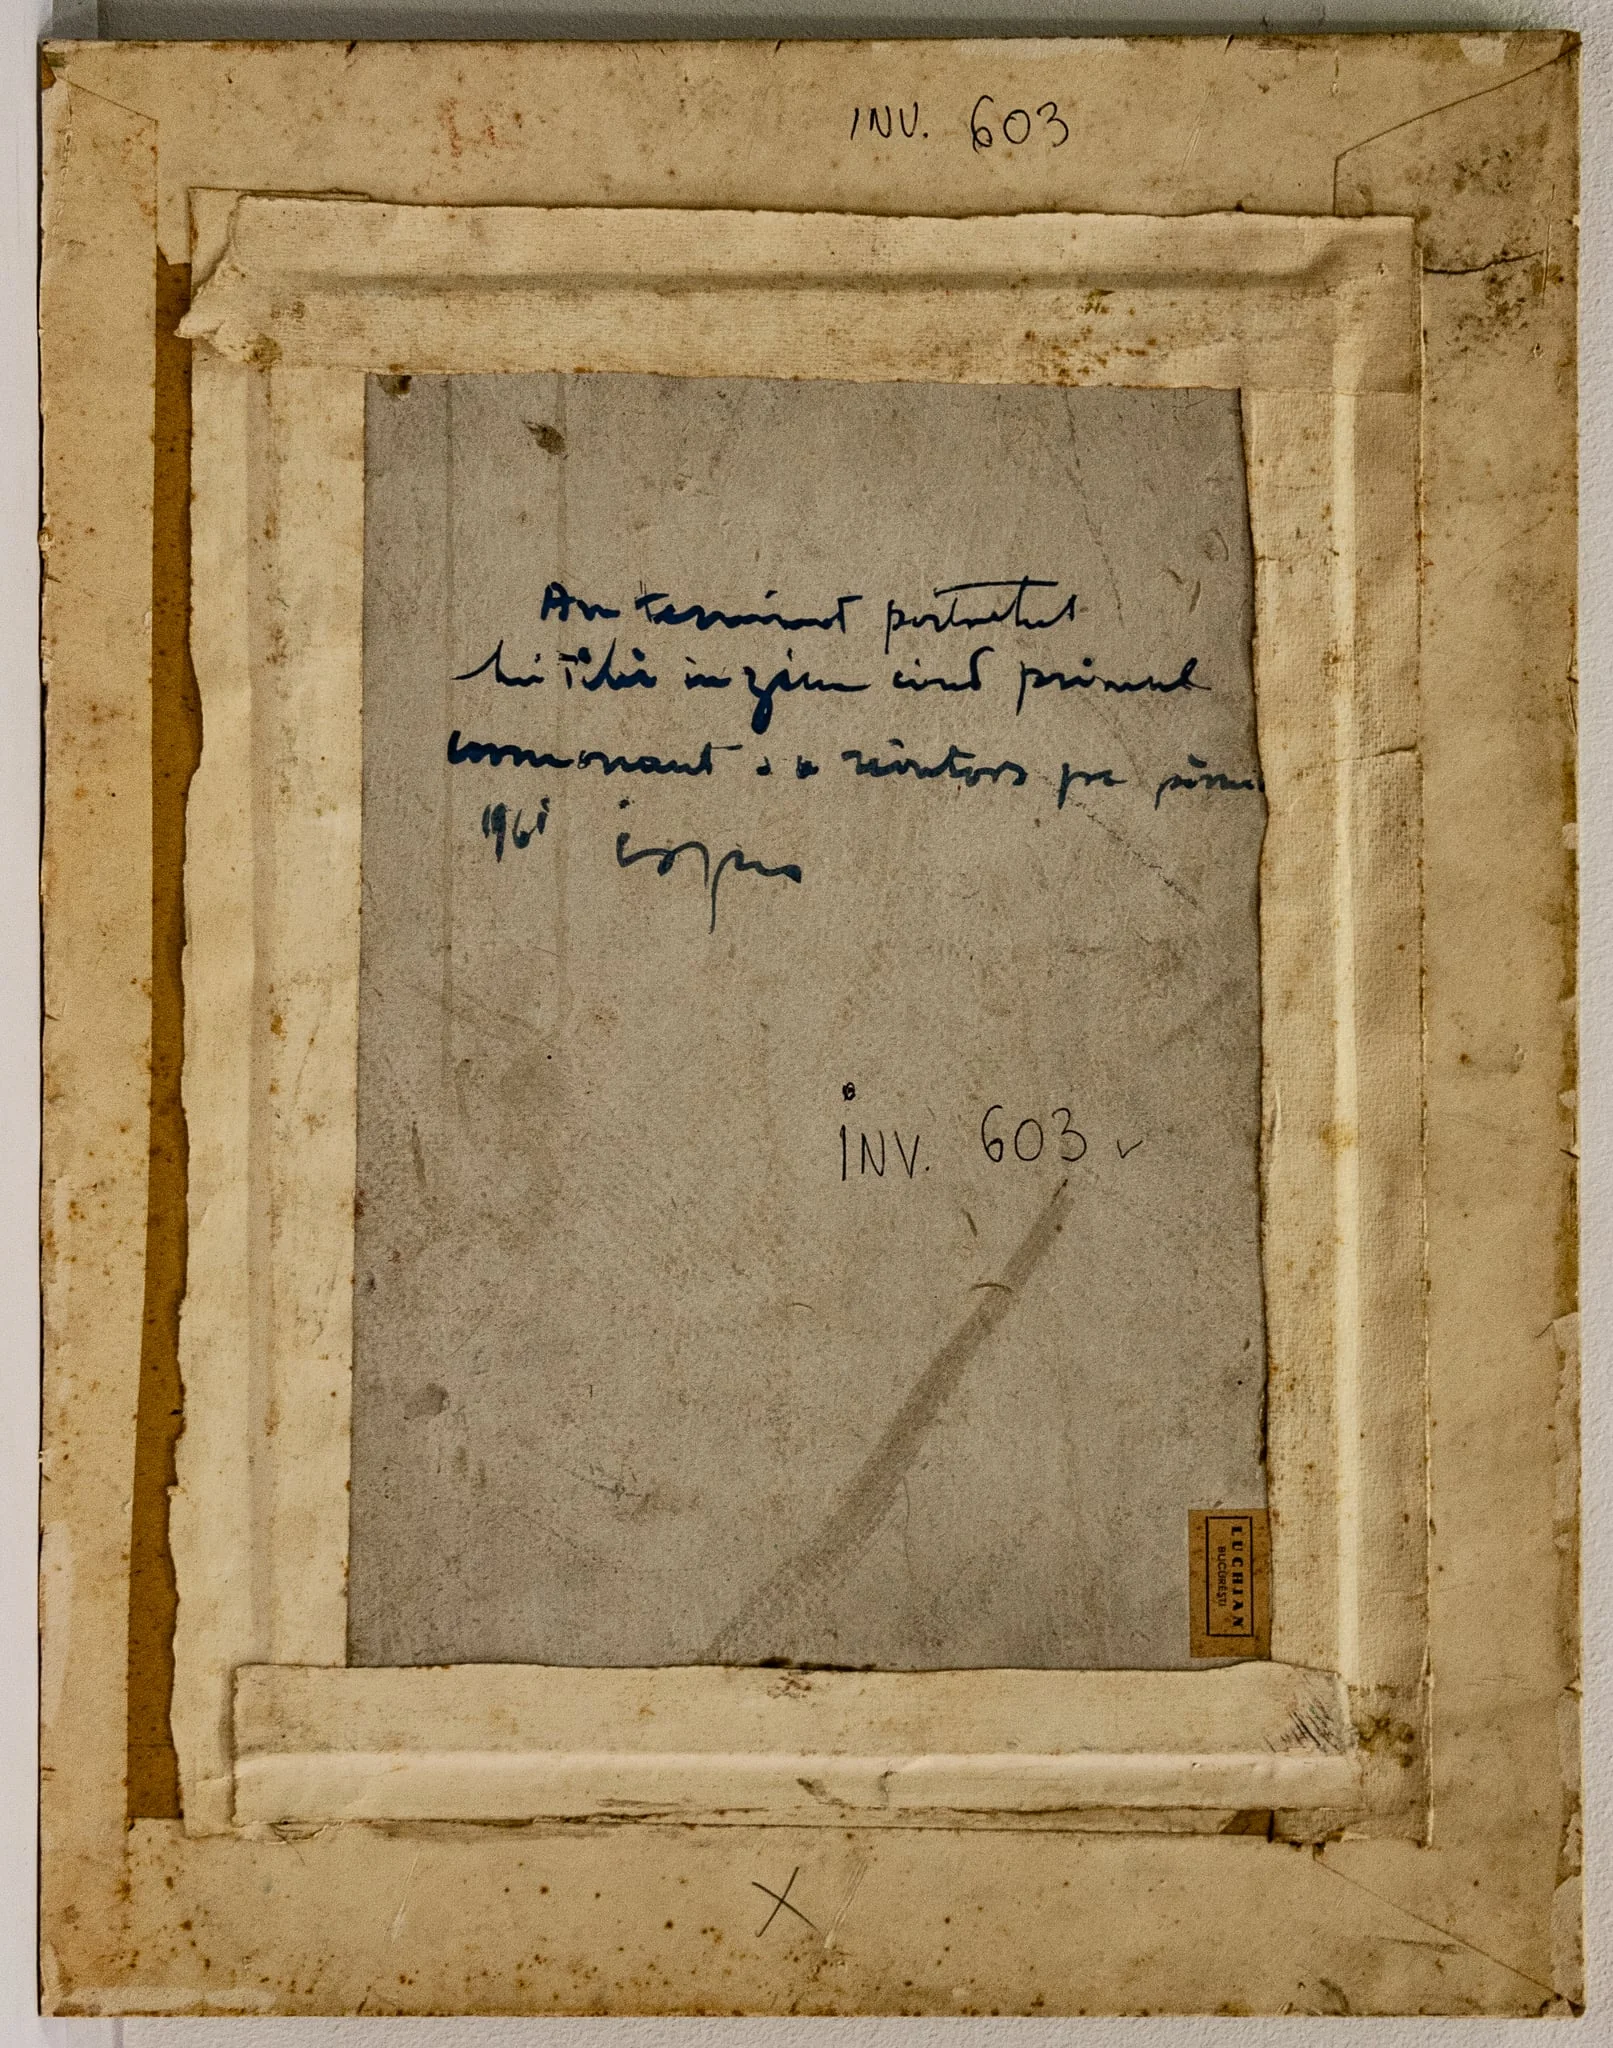 INV. 603
Am terminat portretul
lui Tibi in ziua cind primul
cosmonaut s a reintors pe
1961
INV. 603
LUCHIAN
BUCUREȘTI
X